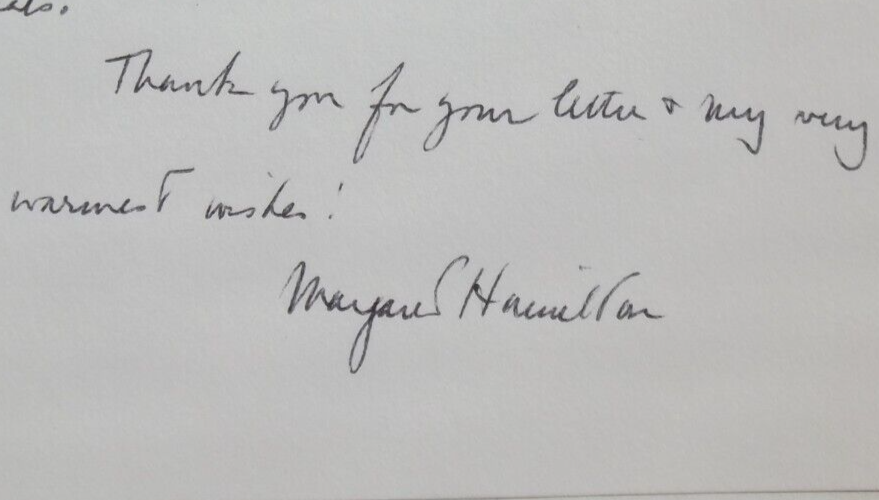 Thank you for your letter & my very
warmest wishes!
Margaret Hamilton